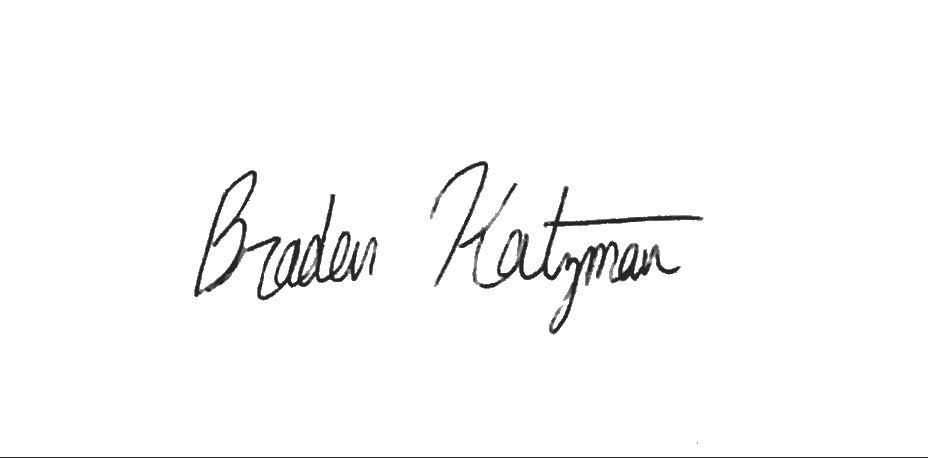 Braden Katzman